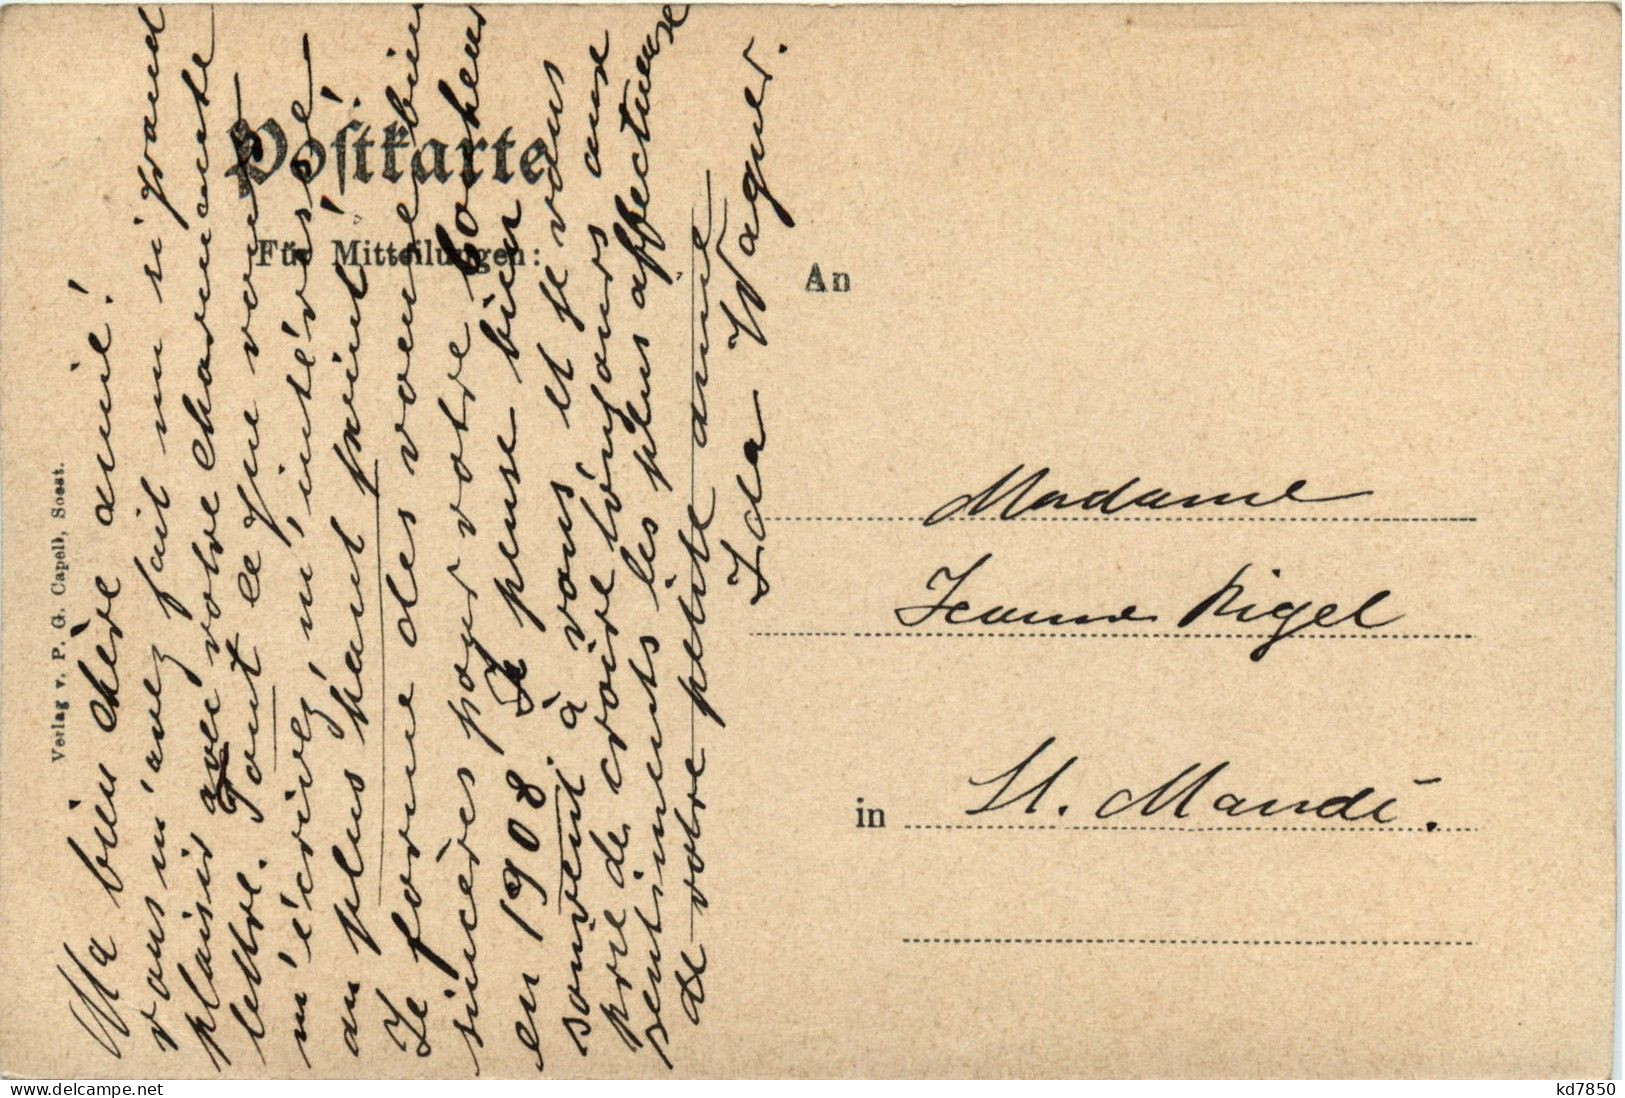 Postkarte
Für Mitteilungen:
Ma bien chère amie!
vous m'avez fait un si grand
plaisir avec votre charmante
lettre. Tout ce que vous
m'écrivez, m'intéresse
au plus haut point!
Je forme des voeux bien
sincères pour votre bonheur
en 1908. Je pense bien
souvent à vous et je vous
prie de croire toujours aux
sentiments les plus affectueux
de votre petite amie
Ida Wagner.
An
Madame
Jeanne Rigel
in St. Mandé.
Verlag v. P. G. Capell, Soest.
www.delcampe.net
kd7850